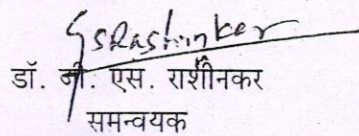 GSRashinker
डॉ. जी. एस. राशीनकर
समन्वयक